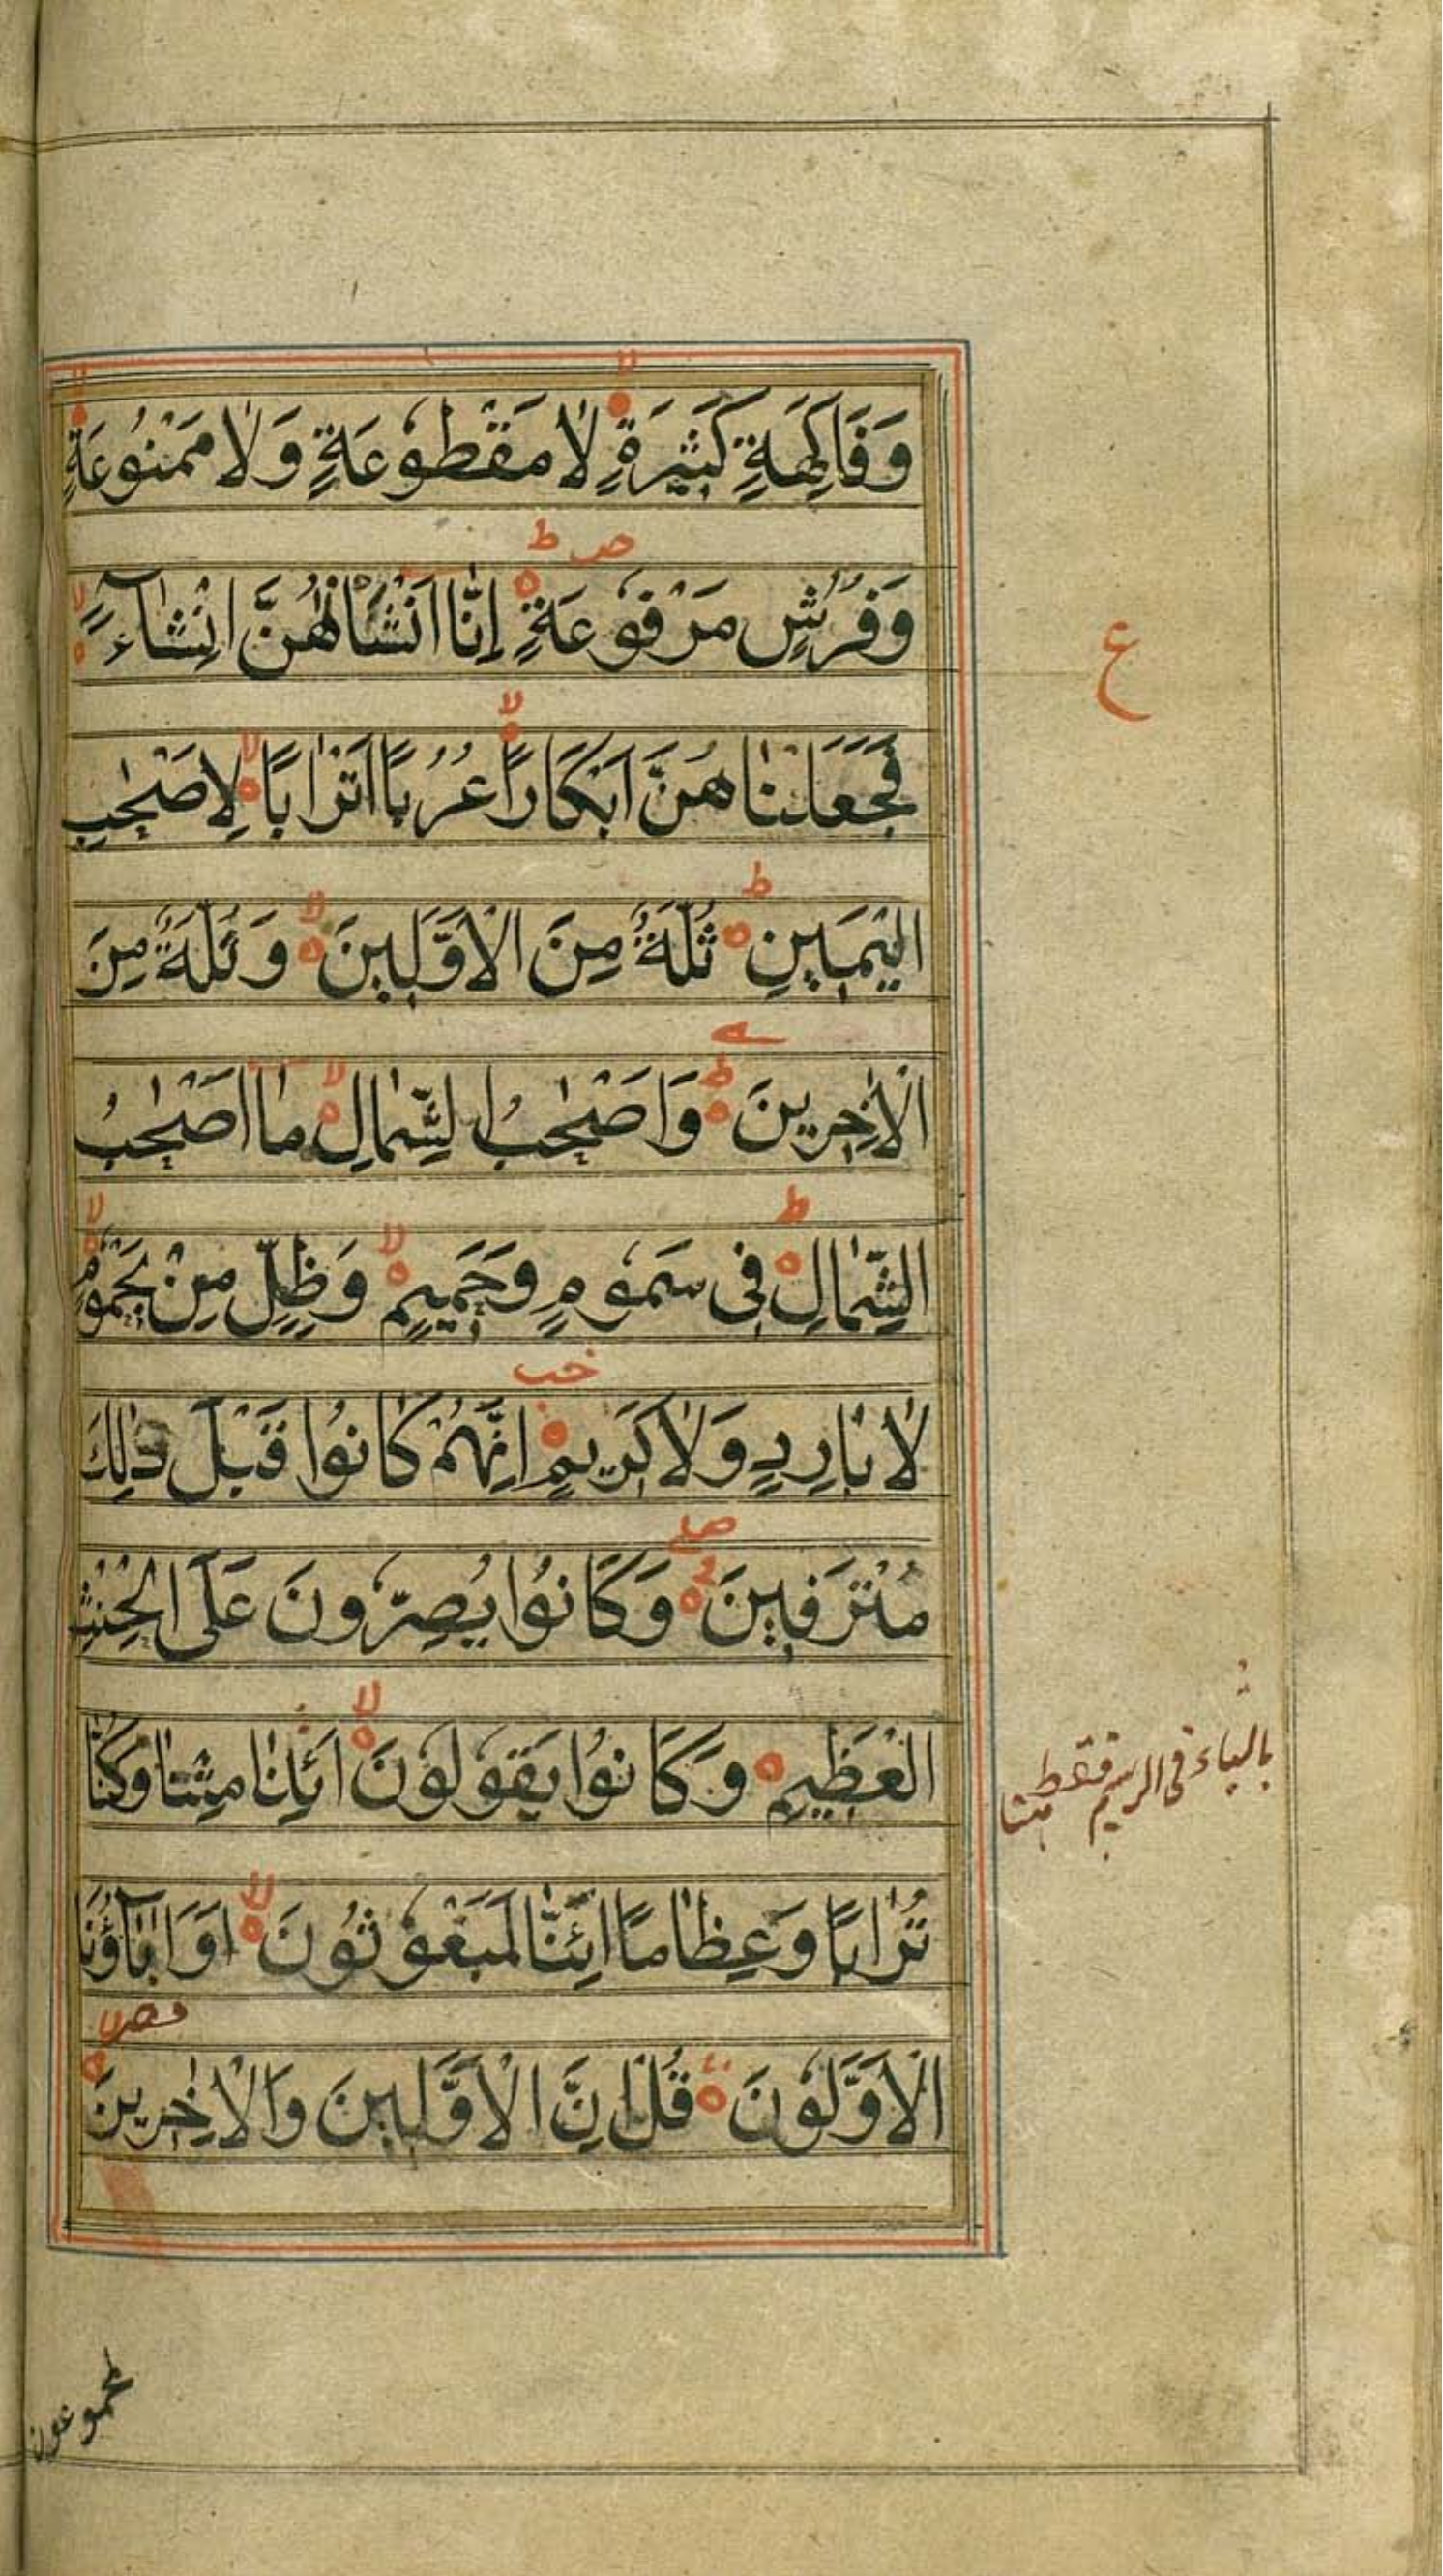 وَفَاكِهَةٍ كَثِيرَةٍ لَا مَقْطُوعَةٍ وَلَا مَمْنُوعَةٍ
وَفُرُشٍ مَرْفُوعَةٍ إِنَّا أَنْشَأْنٰهُنَّ إِنْشَآءً
فَجَعَلْنَاهُنَّ أَبْكَارًا عُرُبًا أَتْرَابًا لِأَصْحٰبِ
الْيَمِينِ ثُلَّةٌ مِنَ الْأَوَّلِينَ وَثُلَّةٌ مِنَ
الْاٰخِرِينَ وَأَصْحٰبُ الشِّمَالِ مَا أَصْحٰبُ
الشِّمَالِ فِي سَمُومٍ وَحَمِيمٍ وَظِلٍّ مِنْ يَحْمُومٍ
لَا بَارِدٍ وَلَا كَرِيمٍ إِنَّهُمْ كَانُوا قَبْلَ ذٰلِكَ
مُتْرَفِينَ وَكَانُوا يُصِرُّونَ عَلَى الْحِنْثِ
الْعَظِيمِ وَكَانُوا يَقُولُونَ أَئِذَا مِتْنَا وَكُنَّا
تُرَابًا وَعِظَامًا أَئِنَّا لَمَبْعُوثُونَ أَوَاٰبَآؤُنَا
الْأَوَّلُونَ قُلْ إِنَّ الْأَوَّلِينَ وَالْاٰخِرِينَ
ع
بالياء فى الرسم فقط
لمجموعون